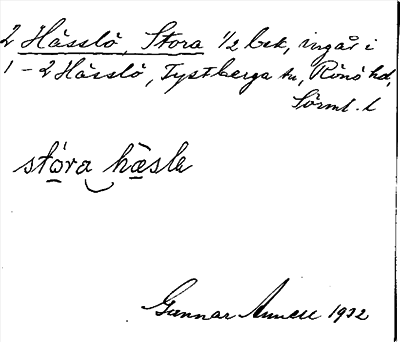 2 Hässlö, Stora 1/2 bek, ingår i
1-2 Hässlö, Tystberga sn, Rönö hd,
Sörml. l
stora hasle
Gunnar Amnell 1932